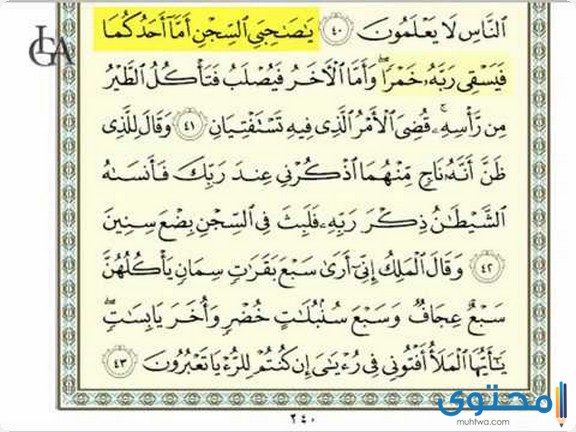 النَّاسِ لَا يَعْلَمُونَ ٤٠ يَٰصَٰحِبَيِ السِّجْنِ أَمَّا أَحَدُكُمَا
فَيَسْقِي رَبَّهُۥ خَمْرًا ۖ وَأَمَّا الْءَاخَرُ فَيُصْلَبُ فَتَأْكُلُ الطَّيْرُ
مِن رَّأْسِهِۦ ۚ قُضِيَ الْأَمْرُ الَّذِي فِيهِ تَسْتَفْتِيَانِ ٤١ وَقَالَ لِلَّذِي
ظَنَّ أَنَّهُۥ نَاجٍ مِّنْهُمَا اذْكُرْنِي عِندَ رَبِّكَ فَأَنسَىٰهُ
الشَّيْطَٰنُ ذِكْرَ رَبِّهِۦ فَلَبِثَ فِي السِّجْنِ بِضْعَ سِنِينَ
٤٢ وَقَالَ الْمَلِكُ إِنِّي أَرَىٰ سَبْعَ بَقَرَٰتٍ سِمَانٍ يَأْكُلُهُنَّ
سَبْعٌ عِجَافٌ وَسَبْعَ سُنۢبُلَٰتٍ خُضْرٍ وَأُخَرَ يَابِسَٰتٍ ۖ
يَٰٓأَيُّهَا الْمَلَأُ أَفْتُونِي فِي رُءْيَٰيَ إِن كُنتُمْ لِلرُّءْيَا تَعْبُرُونَ ٤٣
٢٤٠
محتوى
muhtwa.com